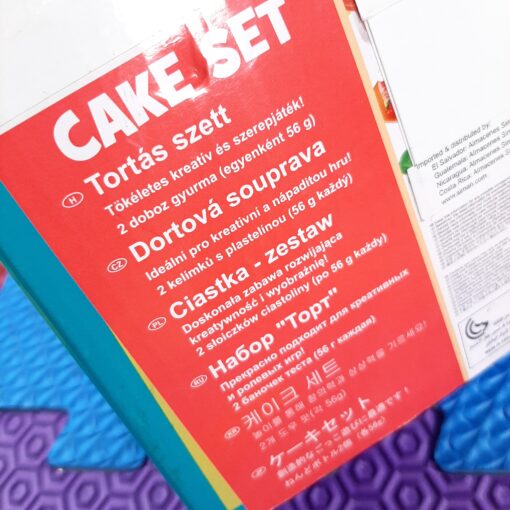 CAKE SET
H
Tortás szett
Tökéletes kreatív és szerepjáték!
2 doboz gyurma (egyenként 56 g)
CZ
Dortová souprava
Ideální pro kreativní a nápaditou hru!
2 kelímků s plastelínou (56 g každý)
PL
Ciastka - zestaw
Doskonała zabawa rozwijająca
kreatywność i wyobraźnię!
2 słoiczków ciastoliny (po 56 g każdy)
RU
Набор "Торт"
Прекрасно подходит для креативных
и ролевых игр!
2 баночек теста (56 г каждая)
케이크 세트
놀이를 통해 창의력과 상상력을 기르세요!
2개 도우 팟(각 56g)
JP
ケーキセット
創造的なごっこ遊びに最適です!
ねんどボトル2個(各56g)
Imported & distributed by:
El Salvador: Almacenes
Guatemala: Almacenes
Nicaragua: Almacenes
Costa Rica: Almacenes
www.siman.com